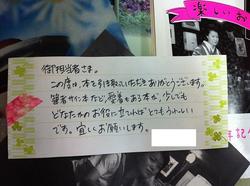 楽しいお
御担当者さま。
この度は、本を引き取っていただきありがとうございます。
著者サイン本など、愛着もある本が、少しでも
どなたかのお役に立てればとてもうれしい
です。宜しくお願いします。